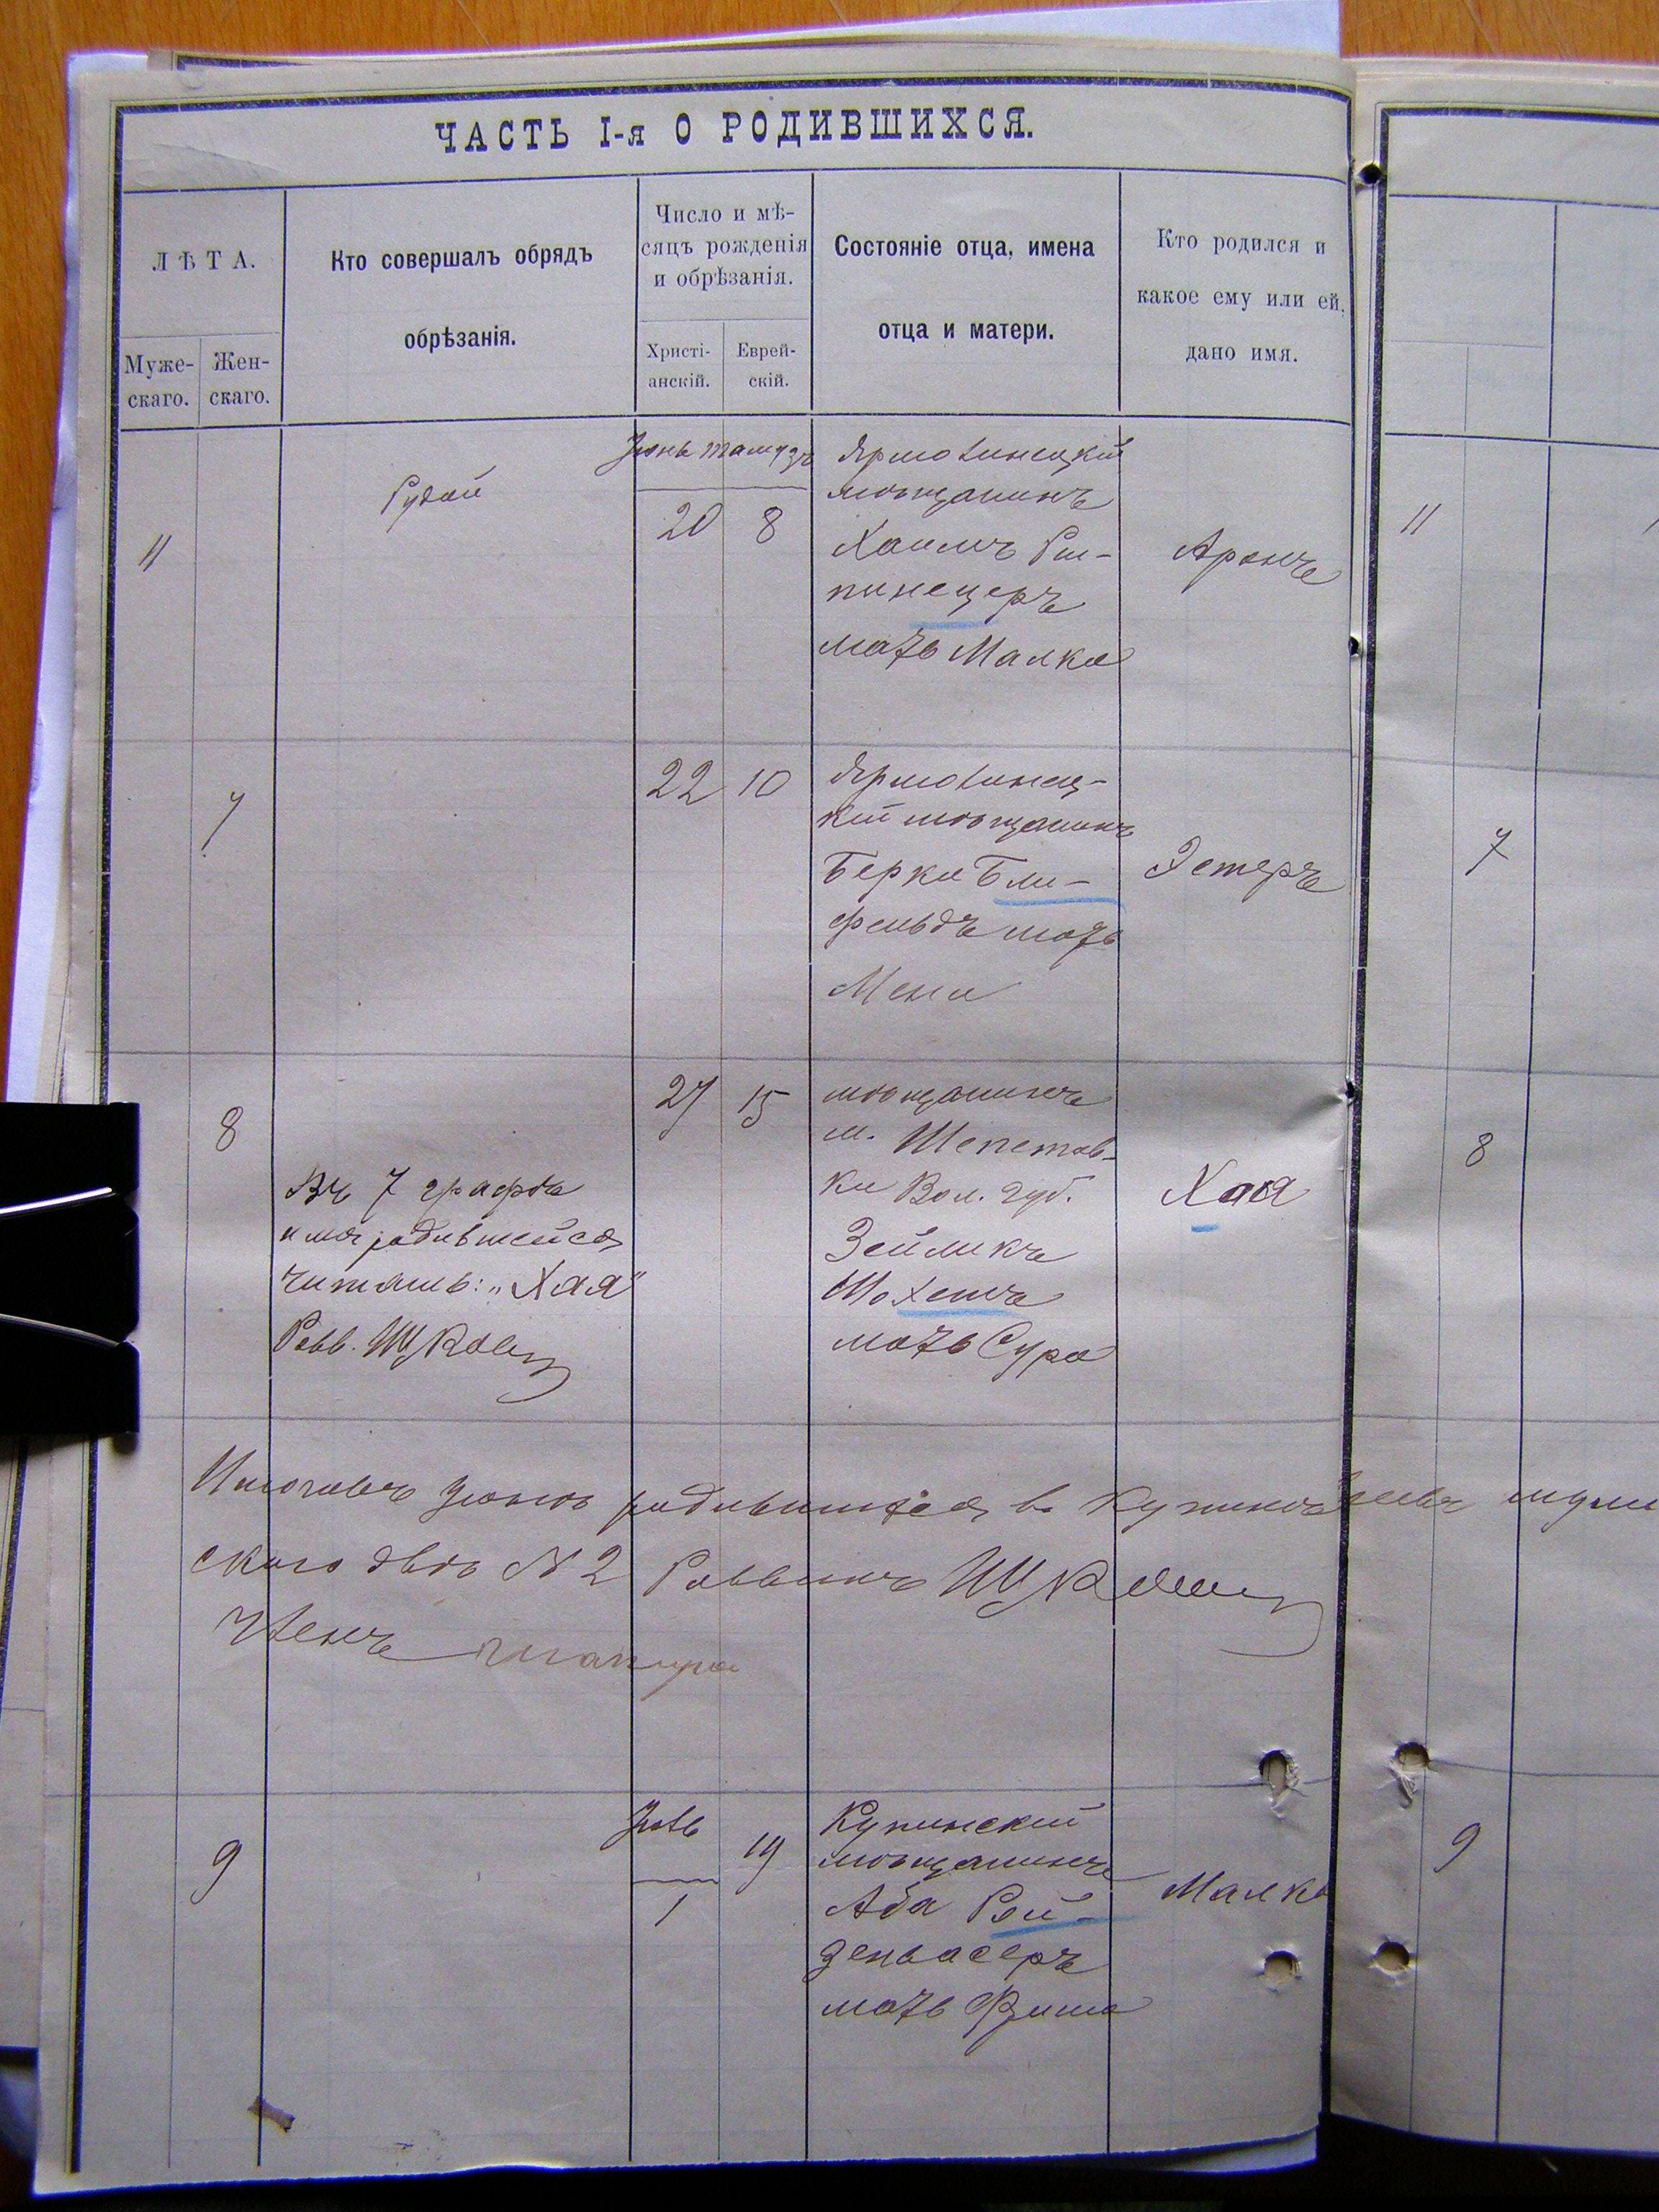 ЧАСТЬ I-я О РОДИВШИХСЯ.
ЛѢТА.
Муже-
скаго.
Жен-
скаго.
Кто совершалъ обрядъ
обрѣзанія.
Число и мѣ-
сяцъ рожденія
и обрѣзанія.
Христі-
анскій.
Еврей-
скій.
Состояніе отца, имена
отца и матери.
Кто родился и
какое ему или ей,
дано имя.
11
Рудой
Іюнь Тамузъ
20 8
Ярмолинецкій
мѣщанинъ
Хаимъ
пинецеръ
мать Малка
Аронъ
11
7
22 10
Ярмолинец-
кій мѣщанинъ
Берко Бли-
фельдъ мать
Эстеръ
7
8
27 15
Въ 7 графѣ
имя родившейся
читать: „Хая"
Равв.
мѣщанинъ
м. Шепетов-
ки Вол. губ.
Зейликъ
мать Сура
Хая
8
Итого въ Іюнѣ родившихся въ Купинѣ
ского двѣ № 2 Раввинъ
Членъ
9
Іюль
1
19
Купинскій
мѣщанинъ
Аба Рой-
зенвасеръ
мать Фрима
Малка
9